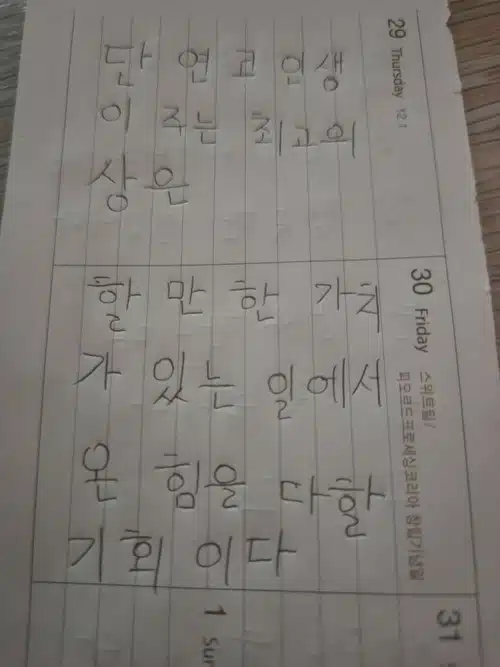 29 Thursday 12.1
단 연 고 인생
이 주는 최고의
상은
30 Friday 스위트밀 /
피오르드프로세싱코리아 창립기념일
할 만 한 가치
가 있는 일에서
온 힘을 다할
기회 이다
31
1 Sun